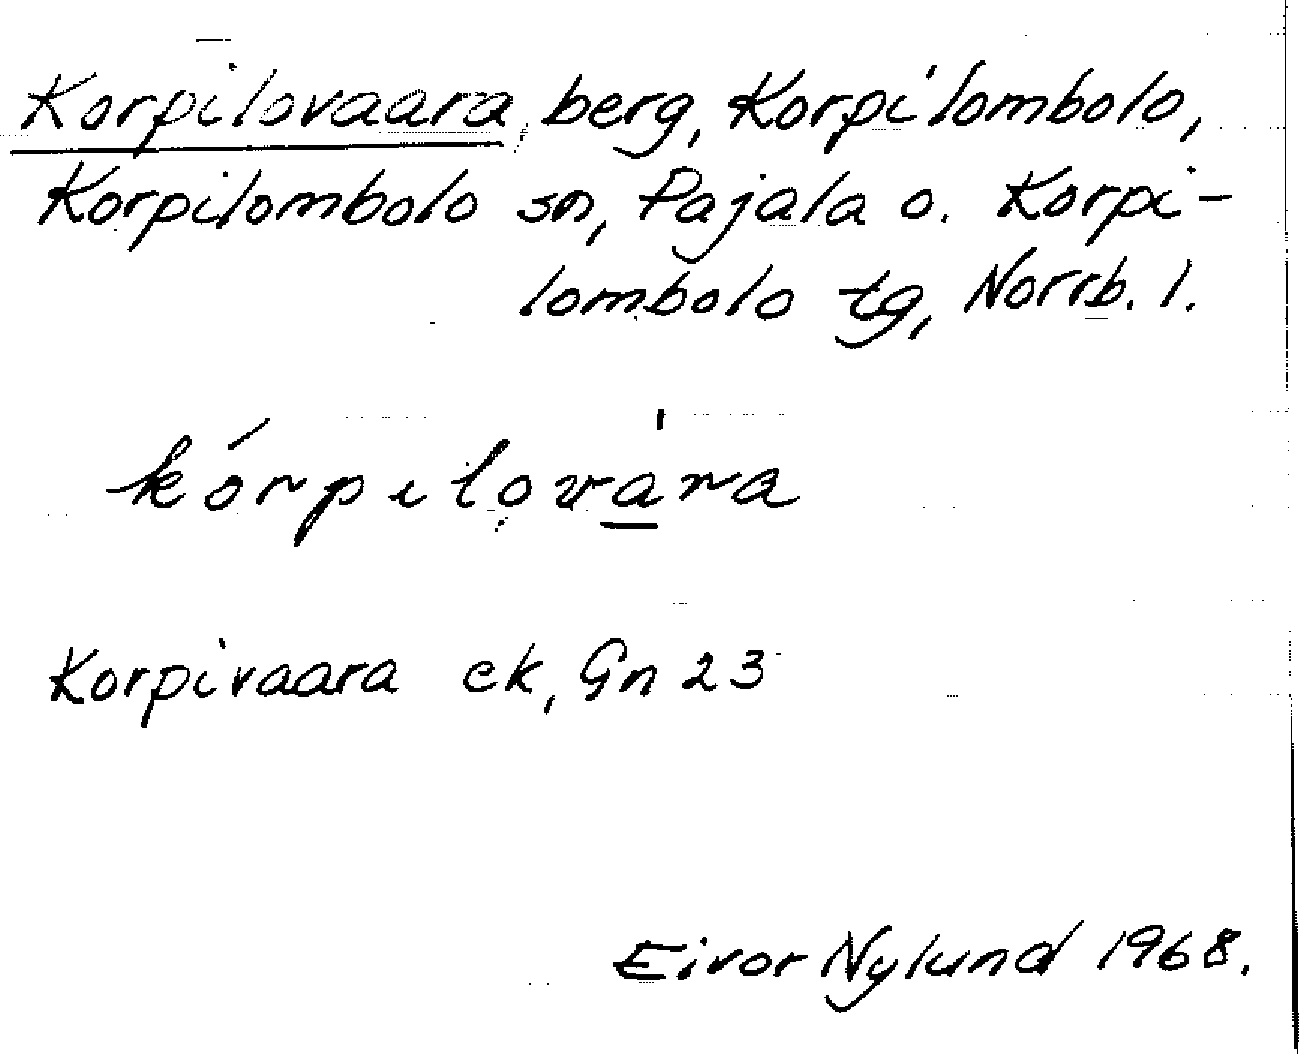 Korpilovaara, berg, Korpilombolo,
Korpilombolo sn, Pajala o. Korpi-
lombolo tg, Norrb. l.
kórpilova̲̍ra
Korpivaara ek, Gn 23
Eivor Nylund 1968.